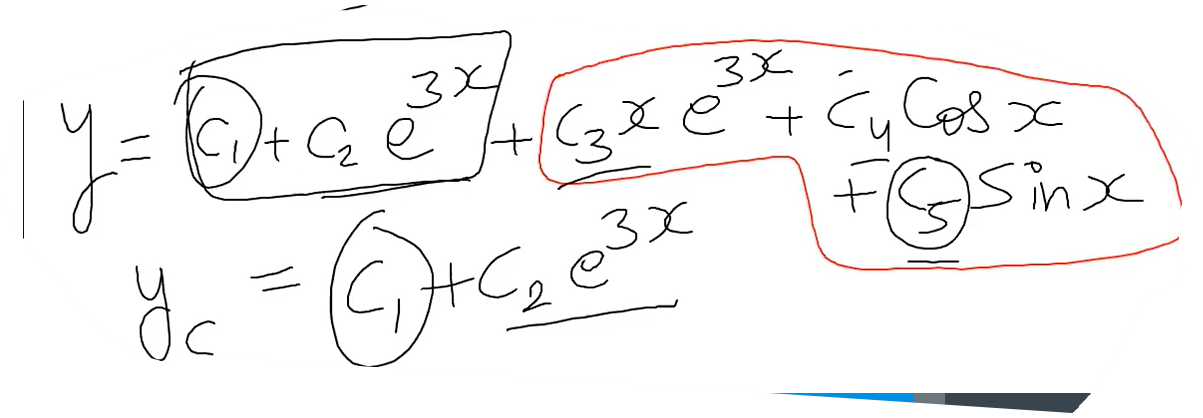 y = c₁ + c₂ e³ˣ + c₃ x e³ˣ + c₄ Cos x
+ c₅ Sin x
y_c = c₁ + c₂ e³ˣ